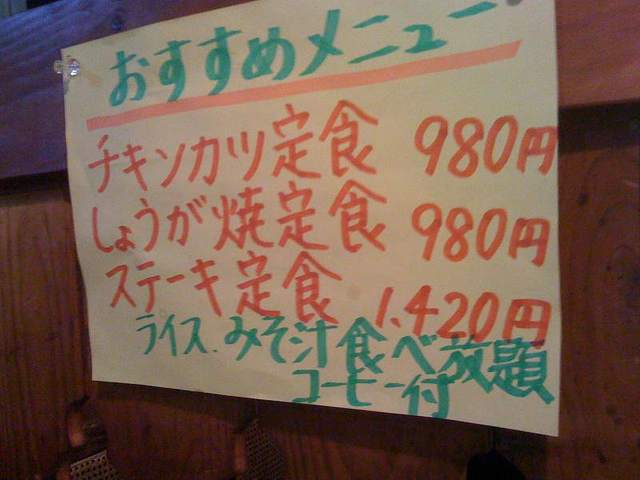 おすすめメニュー
チキンカツ定食 980円
しょうが焼定食 980円
ステーキ定食 1,420円
ライス、みそ汁食べ放題
コーヒー付